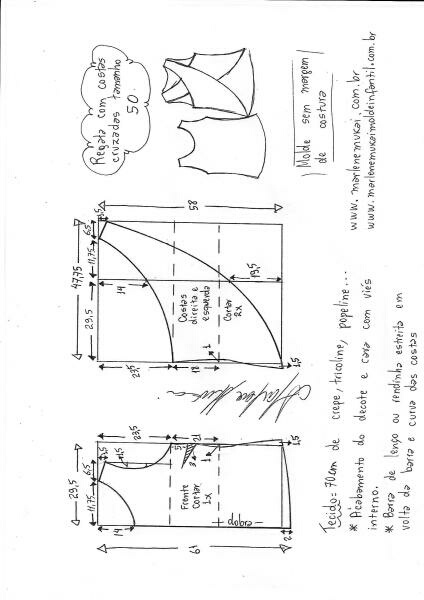 Regata com costas
cruzadas tamanho
50.
Molde sem margem
de costura
www.marlenemukai.com.br
www.marlenemukaimoldeinfantil.com.br
58
6,5
1,5
47,75
11,75
29,5
14
Costas
direita e
esquerda
Cortar
2x
19,5
23,5
18
1
1,5
29,5
6,5
11,75
1,5
14
23,5
21
5
3
1
1,5
Frente
Cortar
1x
dobra
2
61
Tecido= 70cm de crepe, tricoline, popeline...
* Acabamento do decote e cava com viés
interno.
* Barra de lenço ou rendinha estreita em
volta da barra e curva das costas